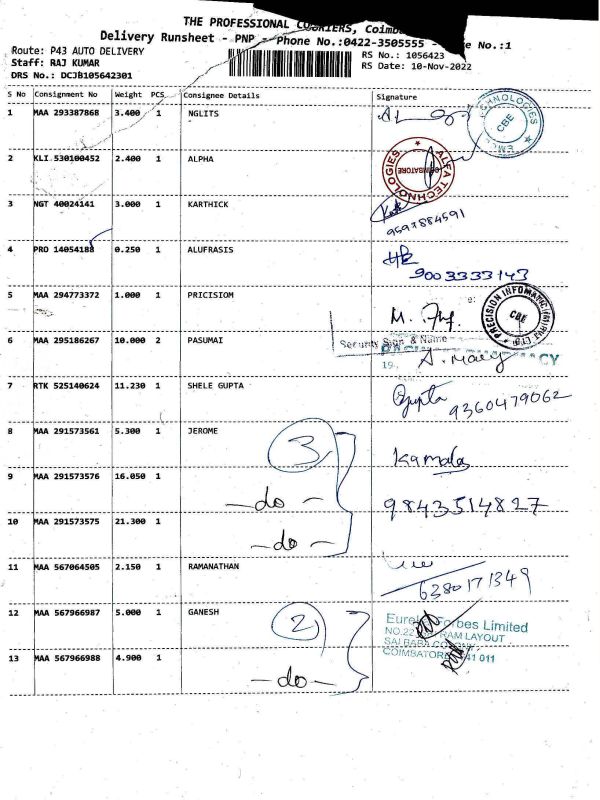 THE PROFESSIONAL COURIERS, Coimb
Delivery Runsheet - PNP - Phone No.:0422-3505555 - No.:1
Route: P43 AUTO DELIVERY
Staff: RAJ KUMAR
DRS No.: DCJB105642301
RS No.: 1056423
RS Date: 10-Nov-2022
S No Consignment No Weight PCS Consignee Details Signature
1 MAA 293387868 3.400 1 NGLITS
TECHNOLOGIES CBE
2 KLI 530100452 2.400 1 ALPHA
ALFA TECHNOLOGIES COIMBATORE
3 NGT 40024141 3.000 1 KARTHICK
9597884591
4 PRO 14054188 0.250 1 ALUFRASIS
9003333143
5 MAA 294773372 1.000 1 PRICISIOM
PRECISION INFOMATIC CBE
6 MAA 295186267 10.000 2 PASUMAI
Security Sign & Name
7 RTK 525140624 11.230 1 SHELE GUPTA
Gupta 9360479062
8 MAA 291573561 5.300 1 JEROME 3 Kamala
9 MAA 291573576 16.050 1 -do- 9843514827
10 MAA 291573575 21.300 1 -do-
11 MAA 567064505 2.150 1 RAMANATHAN
6380171349
12 MAA 567966987 5.000 1 GANESH 2
Eureka Forbes Limited
NO.22 RAM LAYOUT
SAIBABA COLONY
COIMBATORE 641 011
13 MAA 567966988 4.900 1 -do-